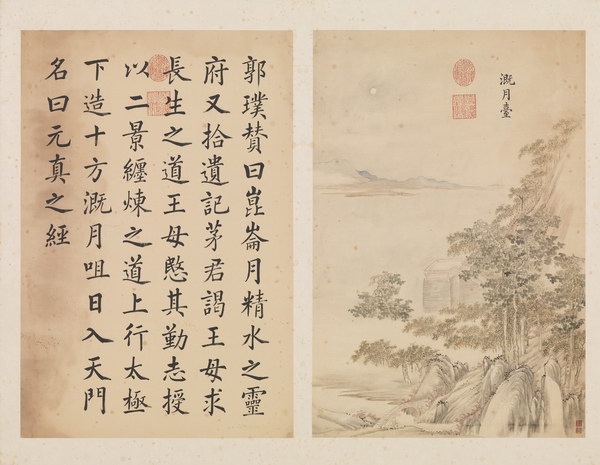 溉月臺
郭璞賛曰崑崙月精水之靈
府又拾遺記茅君謁王母求
長生之道王母愍其勤志授
以二景纏煉之道上行太極
下造十方溉月咀日入天門
名曰元真之經